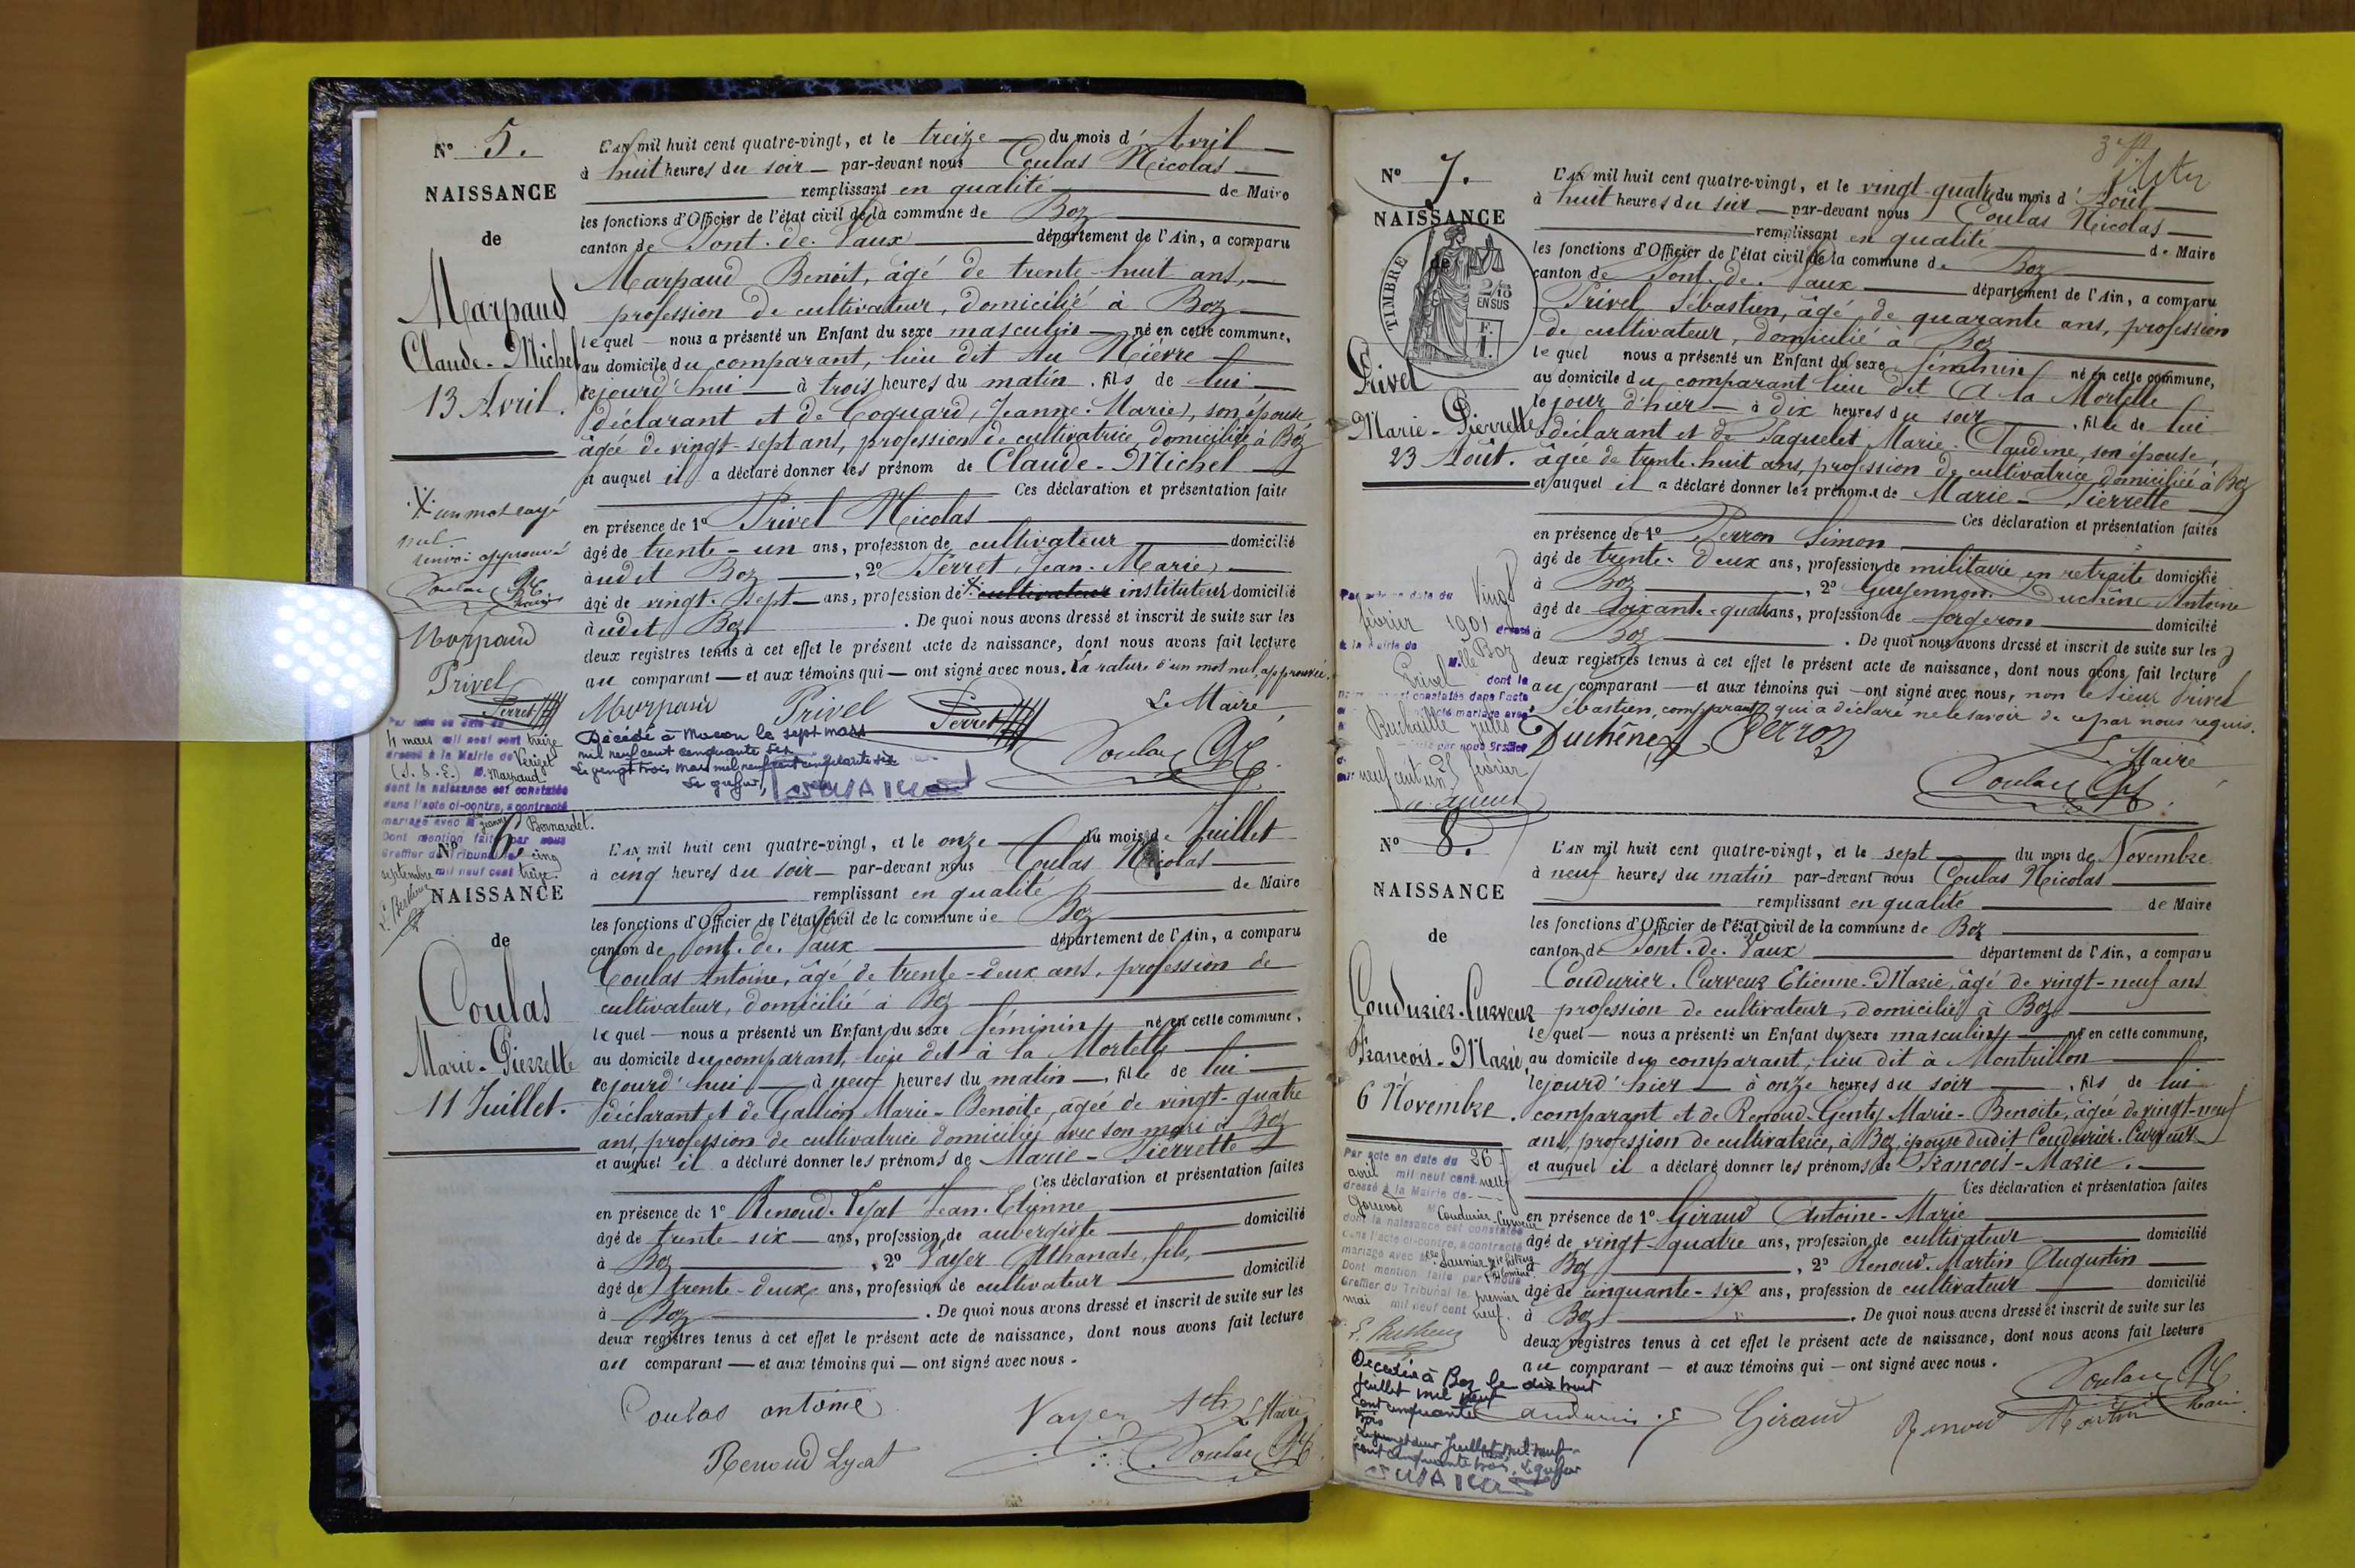 N° 5.
NAISSANCE
de
Marpaud
Claude-Michel
13 Avril.
L'AN mil huit cent quatre-vingt, et le treize du mois d'Avril
à huit heures du soir par-devant nous Coulas Nicolas
remplissant en qualité de Maire
les fonctions d'Officier de l'état civil de la commune de Boz
canton de Pont-de-Vaux département de l'Ain, a comparu
Marpaud Benoit, âgé de trente-huit ans,
profession de cultivateur, domicilié à Boz
lequel nous a présenté un Enfant du sexe masculin né en cette commune,
au domicile du comparant, lieu dit Au Nièvre
cejourd'hui à trois heures du matin, fils de lui
déclarant et de Coquard, (Jeanne-Marie), son épouse
âgée de vingt-sept ans, profession de cultivatrice, domiciliée à Boz
et auquel il a déclaré donner les prénom de Claude-Michel
Ces déclaration et présentation faite
en présence de 1° Privel Nicolas
âgé de trente-un ans, profession de cultivateur domicilié
àudit Boz, 2° Perret (Jean-Marie)
âgé de vingt-sept ans, profession de cultivateur instituteur domicilié
àudit Boz. De quoi nous avons dressé et inscrit de suite sur les
deux registres tenus à cet effet le présent acte de naissance, dont nous avons fait lecture
au comparant et aux témoins qui ont signé avec nous. La rature d'un mot nul, approuvée.
un mot rayé
nul
renvoi approuvé
Marpaud
Privel
Perret
Marpaud Privel Perret Le Maire
Coulas
Décédé à Macon le sept mars
mil neuf cent cinquante six
Le vingt trois Mars mil neuf cent cinquante six
Le greffier,
Par acte en date du
4 mars mil neuf cent treize
dressé à la Mairie de Vérizet
(S. & L.) M. Marpaud
dont la naissance est constatée
dans l'acte ci-contre, a contracté
mariage avec Mlle Jeanne Bernardet.
Dont mention faite par nous
Greffier du Tribunal le cinq
septembre mil neuf cent treize.
N° 6.
NAISSANCE
de
Coulas
Marie-Pierrette
11 Juillet.
L'AN mil huit cent quatre-vingt, et le onze du mois de Juillet
à cinq heures du soir par-devant nous Coulas Nicolas
remplissant en qualité de Maire
les fonctions d'Officier de l'état civil de la commune de Boz
canton de Pont-de-Vaux département de l'Ain, a comparu
Coulas Antoine, âgé de trente-deux ans, profession de
cultivateur, domicilié à Boz
lequel nous a présenté un Enfant du sexe féminin né en cette commune,
au domicile du comparant, lieu dit à la Mortelle
cejourd'hui à neuf heures du matin, fille de lui
déclarant et de Gallion Marie-Benoite, âgée de vingt-quatre
ans, profession de cultivatrice domiciliée avec son mari à Boz
et auquel il a déclaré donner les prénoms de Marie-Pierrette
Ces déclaration et présentation faites
en présence de 1° Renoud-Lyat Jean-Etienne
âgé de trente six ans, profession de aubergiste domicilié
à Boz, 2° Vayer Athanase, fils,
âgé de trente-deux ans, profession de cultivateur domicilié
à Boz. De quoi nous avons dressé et inscrit de suite sur les
deux registres tenus à cet effet le présent acte de naissance, dont nous avons fait lecture
au comparant et aux témoins qui ont signé avec nous.
Coulas antoine Vayer Ath Le Maire
Renoud Lyat Coulas
N° 7.
NAISSANCE
de
TIMBRE
2/10
EN SUS
Privel
Marie-Pierrette
23 Août.
L'AN mil huit cent quatre-vingt, et le vingt-quatre du mois d'Août
à huit heures du soir par-devant nous Coulas Nicolas
remplissant en qualité de Maire
les fonctions d'Officier de l'état civil de la commune de Boz
canton de Pont-de-Vaux département de l'Ain, a comparu
Privel Sébastien, âgé de quarante ans, profession
de cultivateur, domicilié à Boz
lequel nous a présenté un Enfant du sexe féminin né en cette commune,
au domicile du comparant lieu dit A la Mortelle
le jour d'hier à dix heures du soir, fille de lui
déclarant et de Paquelet Marie-Claudine, son épouse,
âgée de trente-huit ans, profession de cultivatrice domiciliée à Boz
et auquel il a déclaré donner les prénoms de Marie-Pierrette
Ces déclaration et présentation faites
en présence de 1° Perron Simon
âgé de trente-deux ans, profession de militaire en retraite domicilié
à Boz, 2° Guyennon-Duchêne Antoine
âgé de soixante-quatre ans, profession de forgeron domicilié
à Boz. De quoi nous avons dressé et inscrit de suite sur les
deux registres tenus à cet effet le présent acte de naissance, dont nous avons fait lecture
au comparant et aux témoins qui ont signé avec nous, non le sieur Privel
Sébastien, comparant qui a déclaré ne le savoir de ce par nous requis.
Duchêne Perron
Le Maire
Coulas
Par acte en date du vingt
février 1901 dressé
à la Mairie de Boz
Mlle Privel dont la
mariage avec
Buchaille Jules
N° 8.
NAISSANCE
de
Coudurier-Curveur
François-Marie,
6 Novembre.
L'AN mil huit cent quatre-vingt, et le sept du mois de Novembre
à neuf heures du matin par-devant nous Coulas Nicolas
remplissant en qualité de Maire
les fonctions d'Officier de l'état civil de la commune de Boz
canton de Pont-de-Vaux département de l'Ain, a comparu
Coudurier-Curveur Etienne-Marie, âgé de vingt-neuf ans
profession de cultivateur, domicilié à Boz
lequel nous a présenté un Enfant du sexe masculin né en cette commune,
au domicile du comparant, lieu dit à Montrillon
lejourd'hier à onze heures du soir, fils de lui
comparant et de Renoud-Genty Marie-Benoite, âgée de vingt-neuf
ans, profession de cultivatrice, à Boz, épouse dudit Coudurier-Curveur
et auquel il a déclaré donner les prénoms de François-Marie.
Ces déclaration et présentation faites
en présence de 1° Giraud Antoine-Marie
âgé de vingt-quatre ans, profession de cultivateur domicilié
à Boz, 2° Renoud-Martin Augustin
âgé de cinquante-six ans, profession de cultivateur domicilié
à Boz. De quoi nous avons dressé et inscrit de suite sur les
deux registres tenus à cet effet le présent acte de naissance, dont nous avons fait lecture
au comparant et aux témoins qui ont signé avec nous.
Giraud Renoud Martin Coulas
Par acte en date du 26
avril mil neuf cent neuf
dressé à la Mairie de
Gorrevod M Coudurier-Curveur
dont la naissance est constatée
dans l'acte ci-contre, a contracté
mariage avec Mlle Saunier
Dont mention faite par nous
Greffier du Tribunal le premier
mai mil neuf cent neuf.
Décédé à Boz le dix huit
juillet mil neuf
cent cinquante
trois
Le vingt deux Juillet mil neuf
cent cinquante trois. Le greffier